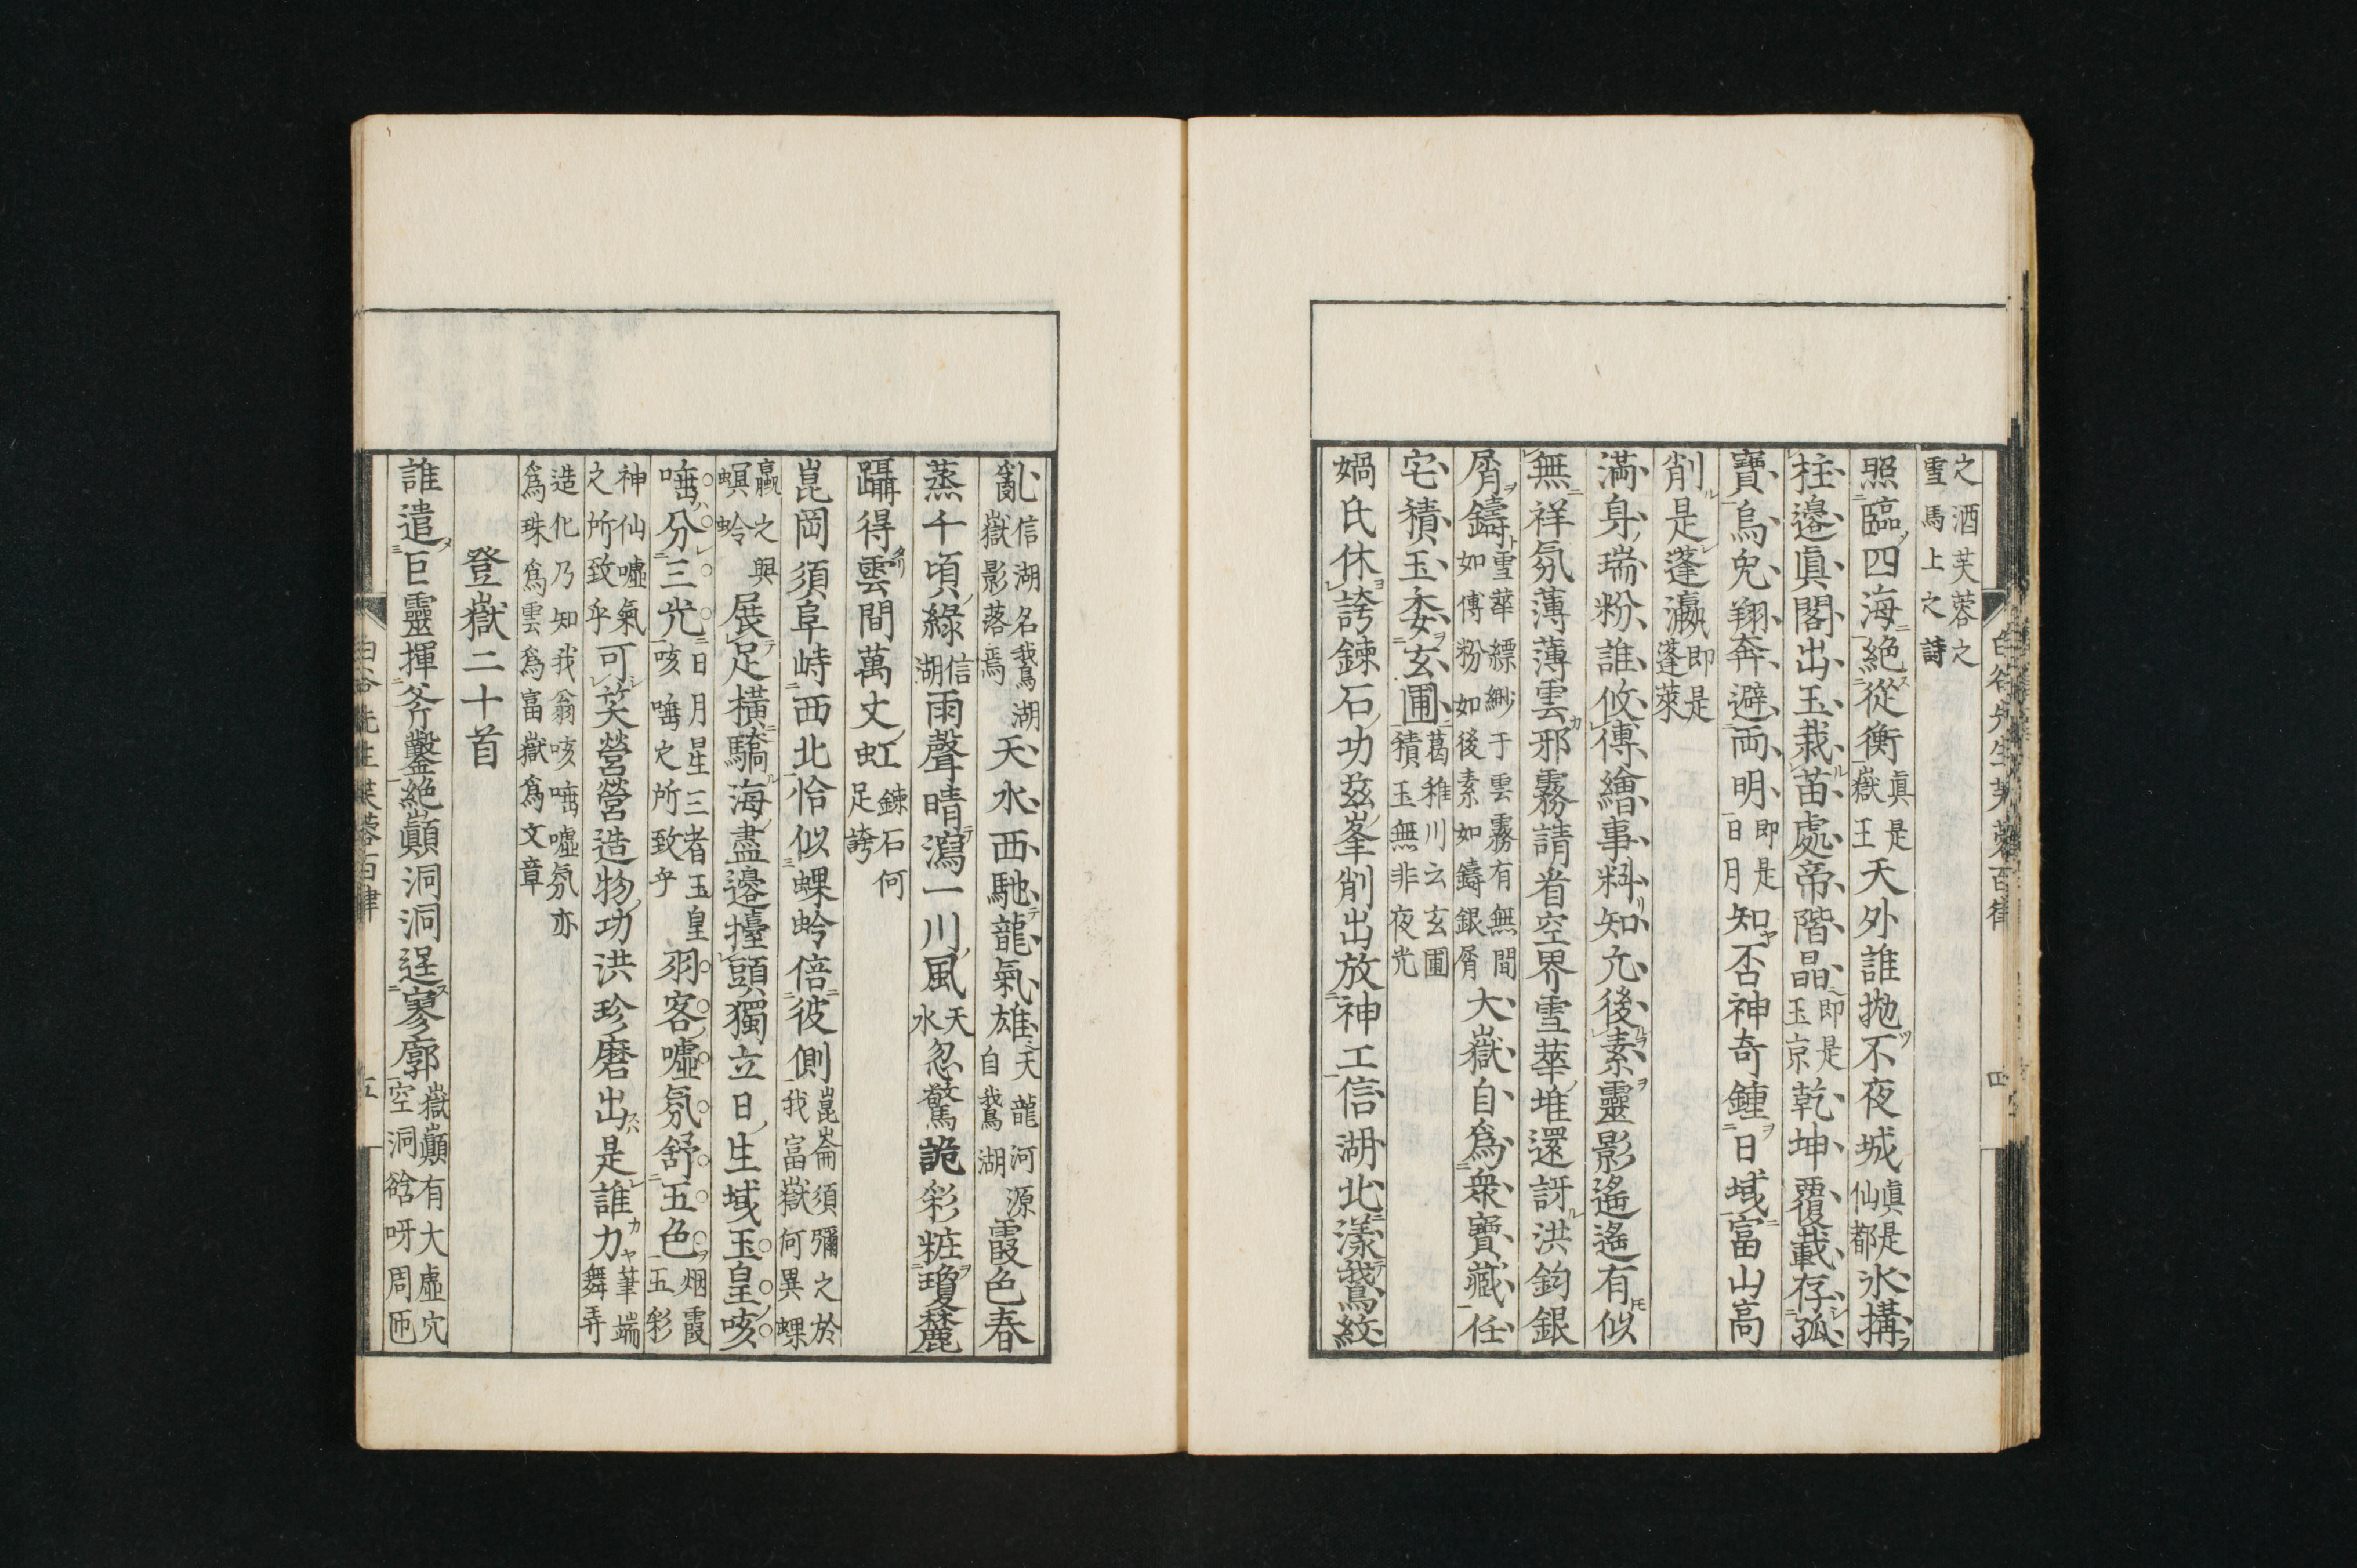 之酒芙蓉之
雪馬上之詩
照臨四海絶從衡眞是嶽王天外誰拋不夜城眞是仙都氷搆
柱邊眞閣出玉栽苗處帝階晶即是玉京乾坤覆載存孤
寶烏兔翔奔避兩明即是日月知否神奇鍾日域富山高
削是蓬瀛即是蓬萊
滿身瑞粉誰攸傳繪事料知允後素靈影遙遙有似
無祥氛薄薄雲邪霧請看空界雪華堆還訝洪鈞銀
屑鑄雪華縹緲于雲霧有無間如傅粉如後素如鑄銀屑大嶽自爲衆寶藏任
宅積玉委玄圃葛稚川云玄圃積玉無非夜光
媧氏休誇鍊石功玆峯削出放神工信湖北漾鵞紋
白谷先生芙蓉百律 四
亂信湖名鵞湖嶽影落焉天水西馳龍氣雄天龍河源自鵞湖霞色春
蒸千頃綠信湖雨聲晴瀉一川風天水忽驚詭彩粧瓊麓
躡得雲間萬丈虹鍊石何足誇
崑岡須阜峙西北恰似蜾蛉倍彼側崑崙須彌之於我富嶽何異蜾
蠃之與螟蛉展足橫驕海盡邊擡頭獨立日生域玉皇咳
唾分三光日月星三者玉皇咳唾之所致乎羽客噓氛舒五色烟霞五彩
神仙噓氣之所致乎可笑營營造物功洪珍磨出是誰力筆端舞弄
造化乃知我翁咳唾噓氛亦爲珠爲雲爲富嶽爲文章
登嶽二十首
誰遣巨靈揮斧鑿絶巓洞洞逞寥廓嶽巓有大虛穴空洞谽呀周匝
白谷先生芙蓉百律 五